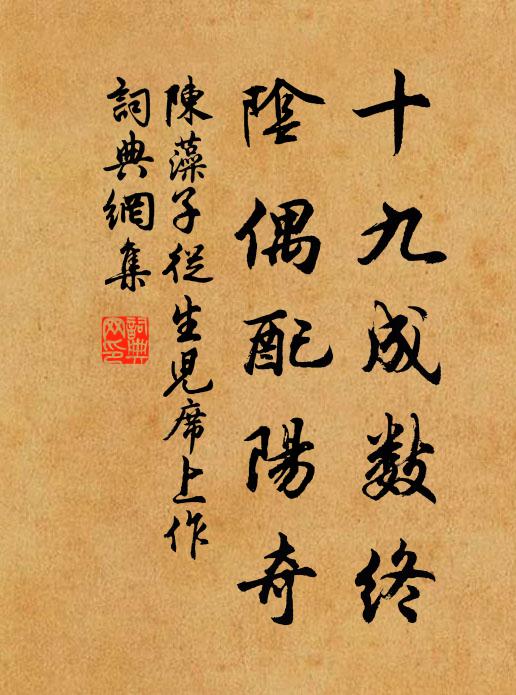 十九成數終
陰偶配陽奇
陳藻子從生兒席上作
詞典網集
詞典网印